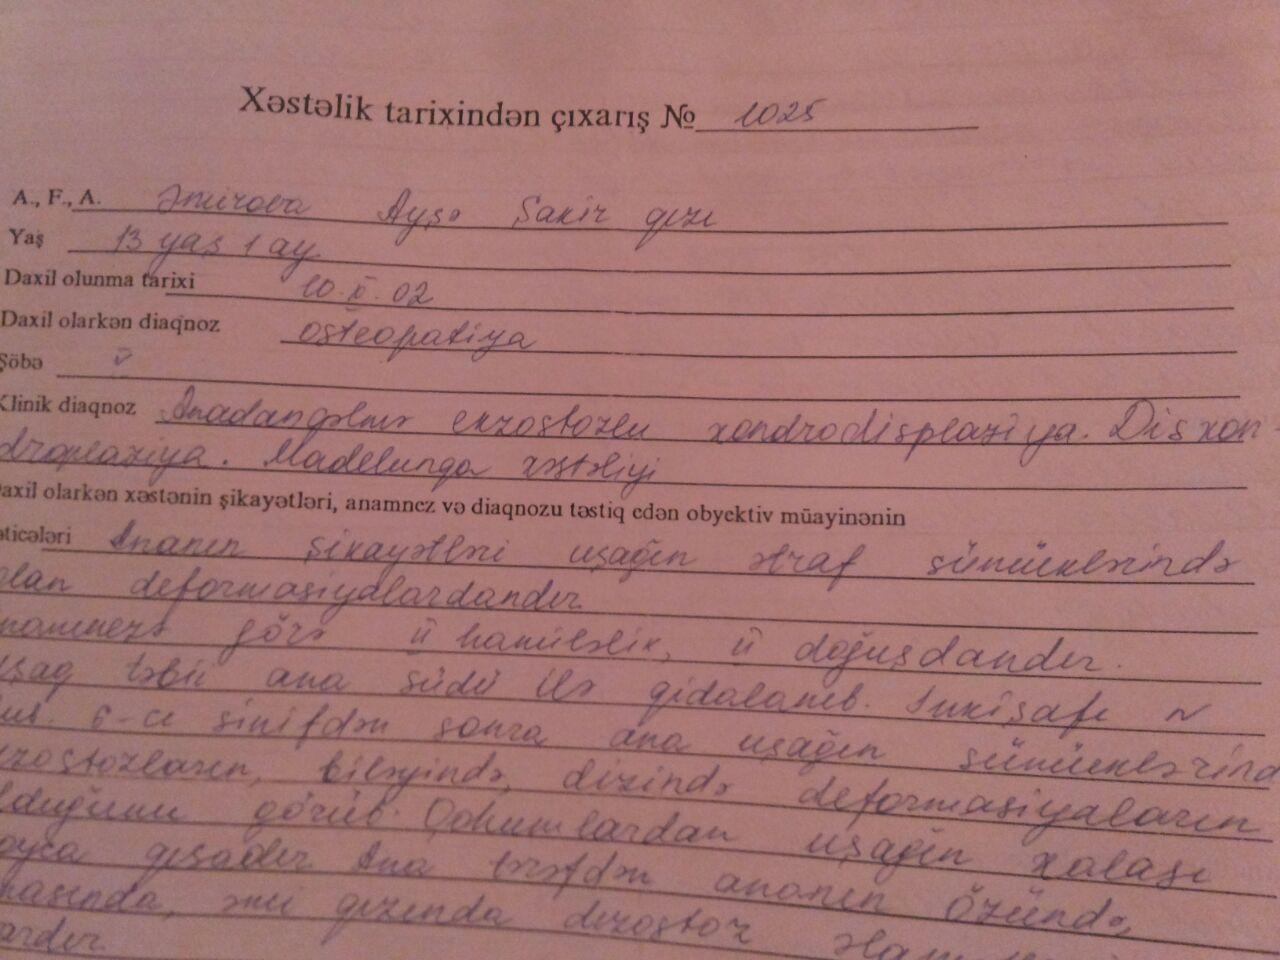 Xəstəlik tarixindən çıxarış № 1025
A., F., A. Əmirova Ayşə Şakir qızı
Yaş 13 yaş 1 ay
Daxil olunma tarixi 10.II.02
Daxil olarkən diaqnoz osteopatiya
Şöbə
Klinik diaqnoz Anadangəlmə ekzostozlu xondrodisplaziya. Disxon-
droplaziya. Madelunga xəstəliyi
Daxil olarkən xəstənin şikayətləri, anamnez və diaqnozu təstiq edən obyektiv müayinənin
əticələri Ananın şikayətləri uşağın ətraf sümüklərində
olan deformasiyalardandır
namnezə görə II hamiləlik, II doğuşdandır.
uşaq təbii ana südü ilə qidalanıb. İnkişafı N
6-cı sinifdən sonra ana uşağın sümüklərind
kzostozların, biləyində, dizində deformasiyaların
lduğunu görüb. Qohumlardan uşağın xalası
oyca qısadır Ana tərəfdən ananın özündə,
əmi qızında
ardır